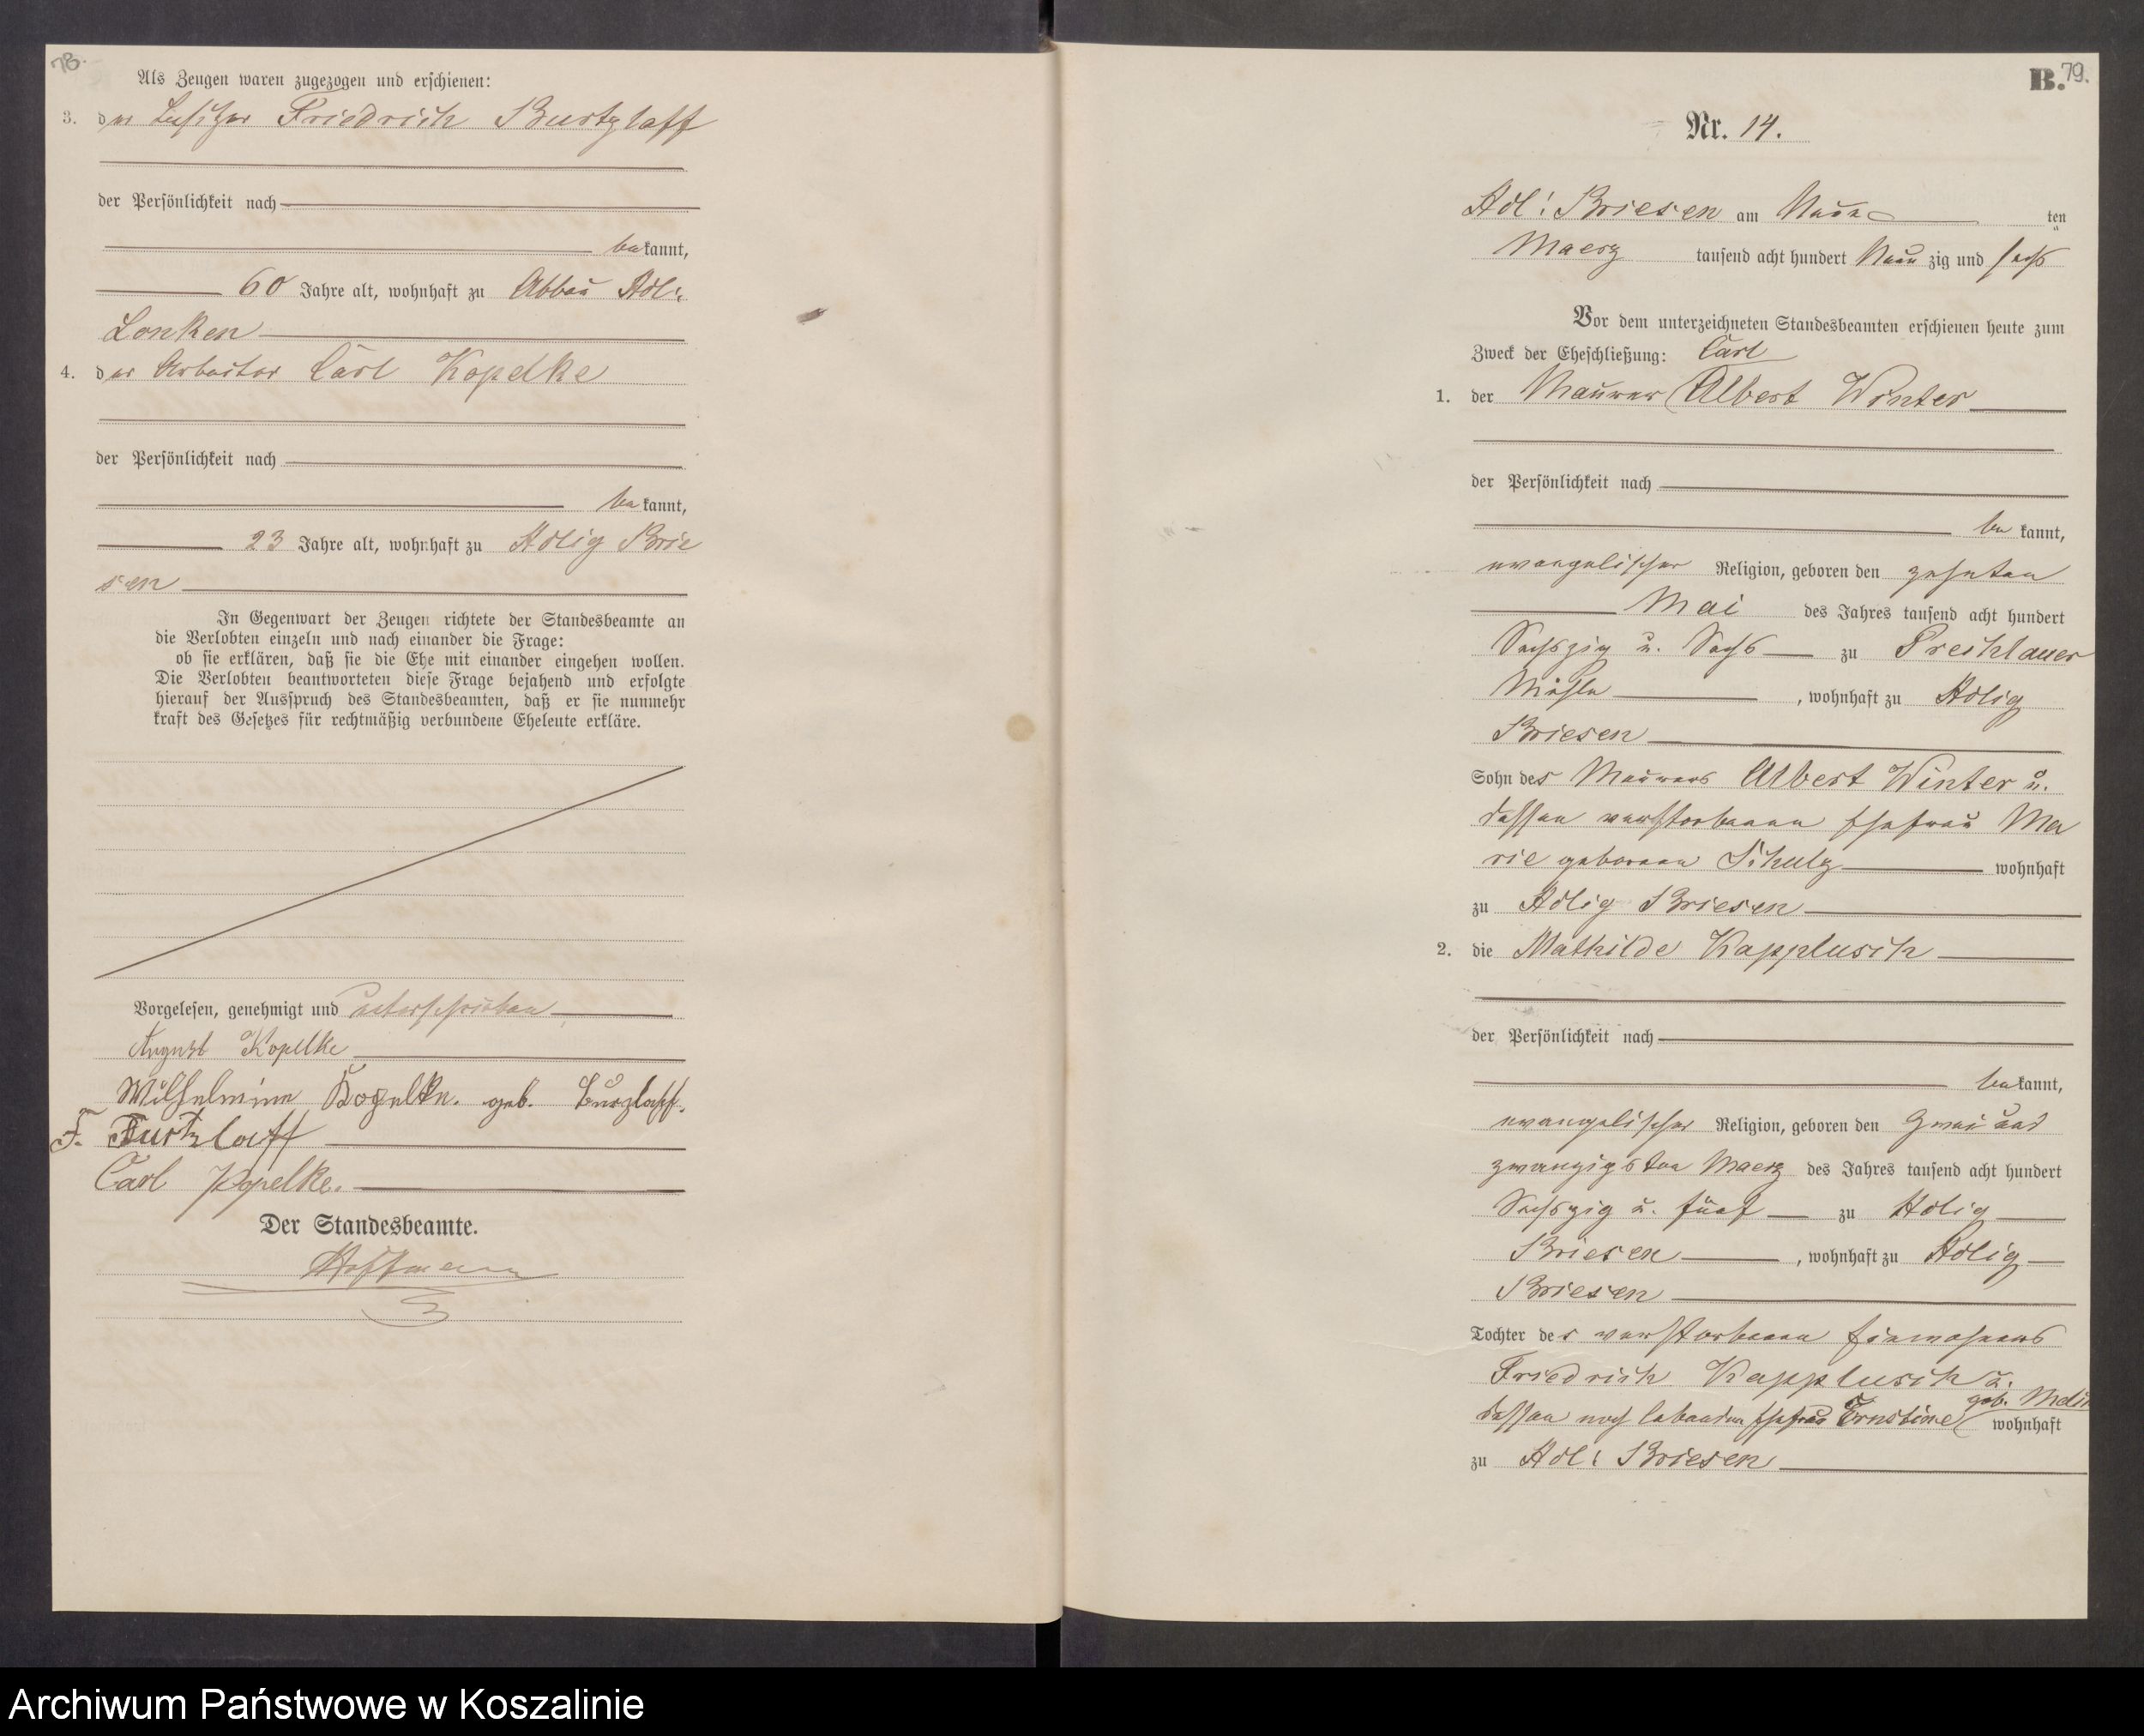 78.
Als Zeugen waren zugezogen und erschienen:
3. der Besitzer Friedrich Burtzlaff
der Persönlichkeit nach
bekannt,
60 Jahre alt, wohnhaft zu Abbau Adl:
Lonken
4. der Arbeiter Carl Kopelke
der Persönlichkeit nach
bekannt,
23 Jahre alt, wohnhaft zu Adlig Brie
sen
In Gegenwart der Zeugen richtete der Standesbeamte an
die Verlobten einzeln und nach einander die Frage:
ob sie erklären, daß sie die Ehe mit einander eingehen wollen.
Die Verlobten beantworteten diese Frage bejahend und erfolgte
hierauf der Ausspruch des Standesbeamten, daß er sie nunmehr
kraft des Gesetzes für rechtmäßig verbundene Eheleute erkläre.
Vorgelesen, genehmigt und unterschrieben
August Kopelke
Wilhelmine Kopelke. geb. Burzlaff.
F. Burtzlaff
Carl Kopelke.
Der Standesbeamte.
Hoffmann
B. 79.
Nr. 14.
Adl: Briesen am Neun ten
Maerz tausend acht hundert Neun zig und sechs
Vor dem unterzeichneten Standesbeamten erschienen heute zum
Zweck der Eheschließung: Carl
1. der Maurer Albert Winter
der Persönlichkeit nach
bekannt,
evangelischer Religion, geboren den zehnten
Mai des Jahres tausend acht hundert
Sechszig u. Sechs zu Prechlauer
Mühle, wohnhaft zu Adlig
Briesen
Sohn des Maurers Albert Winter u.
dessen verstorbenen Ehefrau Ma
rie geborenen Schulz wohnhaft
zu Adlig Briesen
2. die Mathilde Kapplusch
der Persönlichkeit nach
bekannt,
evangelischer Religion, geboren den Zwei und
zwanzigsten Maerz des Jahres tausend acht hundert
Sechszig u. fünf zu Adlig
Briesen, wohnhaft zu Adlig
Briesen
Tochter des verstorbenen Einwohners
Friedrich Kapplusch u.
geb.
dessen noch lebenden Ehefrau Ernstine wohnhaft
zu Adl: Briesen
Archiwum Państwowe w Koszalinie